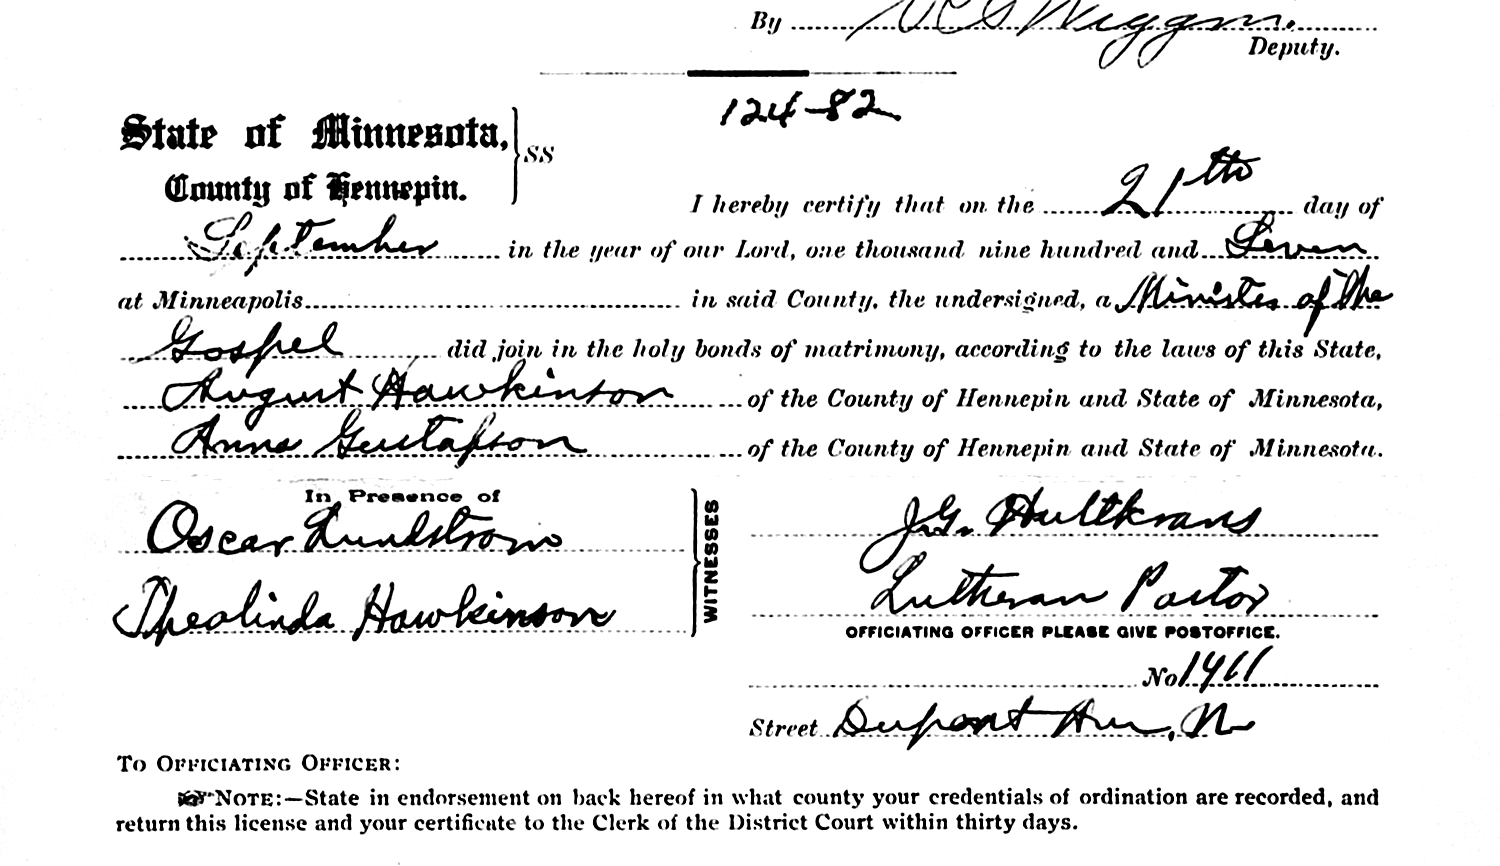 By V C S Wiggin.
Deputy.
124-82
State of Minnesota,
County of Hennepin.
SS
I hereby certify that on the 21th day of
September in the year of our Lord, one thousand nine hundred and Seven
at Minneapolis in said County, the undersigned, a Minister of the
Gospel did join in the holy bonds of matrimony, according to the laws of this State,
August Hawkinson of the County of Hennepin and State of Minnesota,
Anna Gustafson of the County of Hennepin and State of Minnesota.
In Presence of
Oscar Lundstrom
Thealinda Hawkinson
WITNESSES
J.G. Hultkrans
Lutheran Pastor
OFFICIATING OFFICER PLEASE GIVE POSTOFFICE.
No 1911
Street Dupont Ave, N
TO OFFICIATING OFFICER:
☞NOTE:—State in endorsement on back hereof in what county your credentials of ordination are recorded, and
return this license and your certificate to the Clerk of the District Court within thirty days.